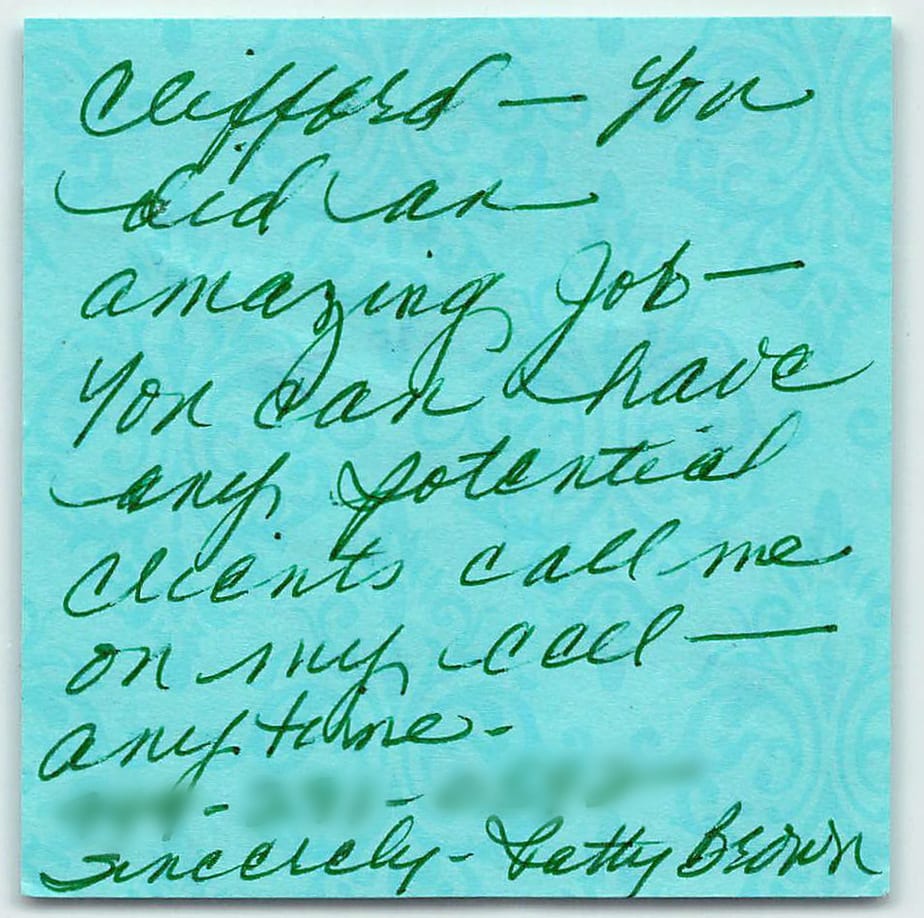 Clifford — You
did an
amazing Job —
You can have
any potential
clients call me
on my cell —
anytime -
Sincerely - Patty Brown